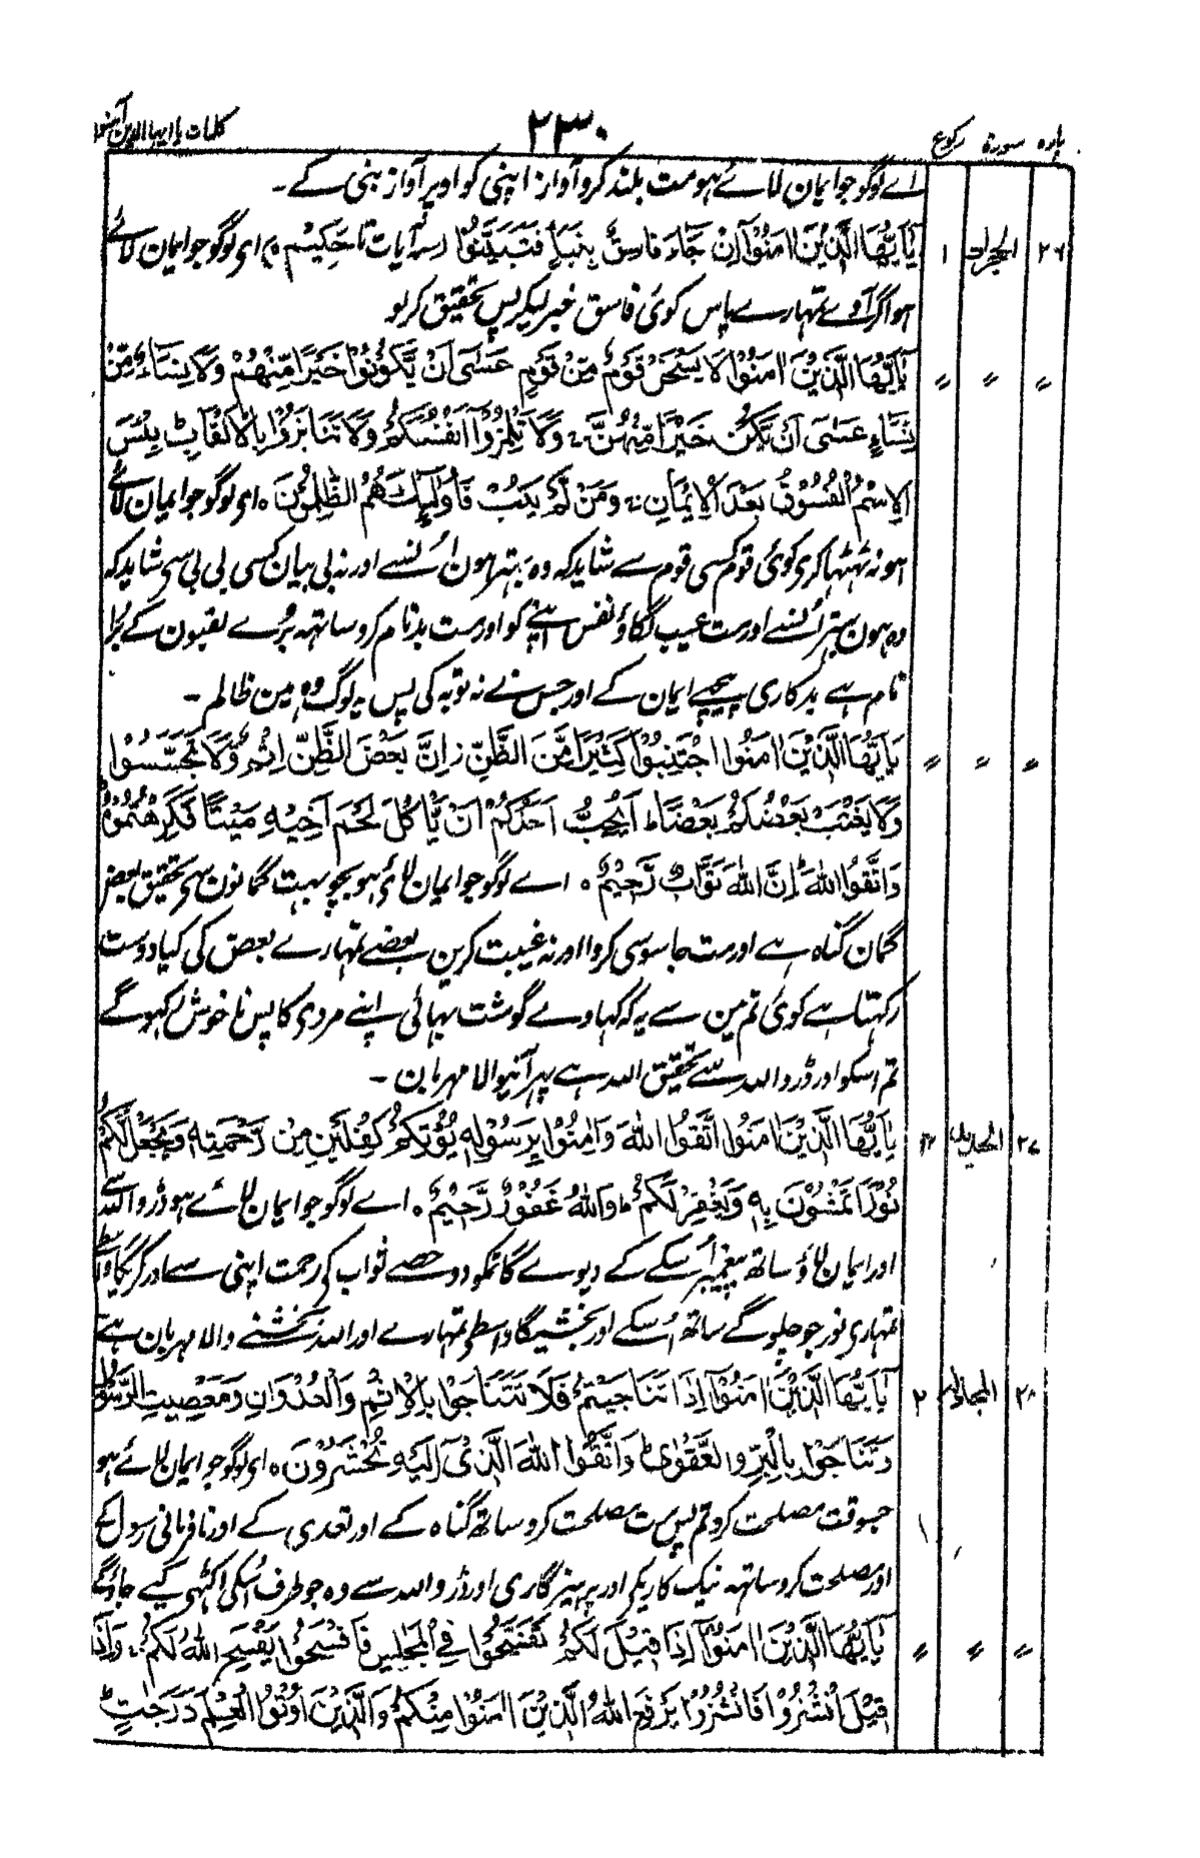 پارہ سورۃ رکوع ۲۳۰ کلمات یا ایہا الذین آمنوا
اے لوگو جو ایمان لائے ہو مت بلند کرو آواز اپنی کو اوپر آواز نبی کے۔
۲۶ الحجرات ۱ یٰۤاَیُّهَا الَّذِیْنَ اٰمَنُوْۤا اِنْ جَآءَ فَاسِقٌۢ بِنَبَاٍ فَتَبَیَّنُوْۤا سہ آیات تا حَکِیْمٌ ۝ ای لوگو جو ایمان لائے
ہو اگر آوے تمہارے پاس کوئی فاسق خبر لیکر پس تحقیق کر لو
〃 〃 〃 یٰۤاَیُّهَا الَّذِیْنَ اٰمَنُوْا لَا یَسْخَرْ قَوْمٌ مِّنْ قَوْمٍ عَسٰۤی اَنْ یَّکُوْنُوْا خَیْرًا مِّنْهُمْ وَلَا نِسَآءٌ مِّنْ
نِّسَآءٍ عَسٰۤی اَنْ یَّکُنَّ خَیْرًا مِّنْهُنَّ ۚ وَلَا تَلْمِزُوْۤا اَنْفُسَکُمْ وَلَا تَنَابَزُوْا بِالْاَلْقَابِ ؕ بِئْسَ
الِاسْمُ الْفُسُوْقُ بَعْدَ الْاِیْمَانِ ۚ وَمَنْ لَّمْ یَتُبْ فَاُولٰٓئِکَ هُمُ الظّٰلِمُوْنَ ۝ ای لوگو جو ایمان لائے
ہو نہ ٹھٹھا کری کوئی قوم کسی قوم سے شاید کہ وہ بہتر ہون اُنسے اور نہ بی بیان کسی بی بی سی شاید کہ
وہ ہون بہتر اُنسے اور مت عیب لگاؤ نفس اپنے کو اور مت بدنام کرو ساتھہ بُرے لقبون کے بُرا
نام ہے بدکاری پیچھے ایمان کے اور جس نے نہ توبہ کی پس یہ لوگ وہ ہین ظالم۔
〃 〃 〃 یٰۤاَیُّهَا الَّذِیْنَ اٰمَنُوا اجْتَنِبُوْا کَثِیْرًا مِّنَ الظَّنِّ ز اِنَّ بَعْضَ الظَّنِّ اِثْمٌ وَّلَا تَجَسَّسُوْا
وَلَا یَغْتَبْ بَّعْضُکُمْ بَعْضًا ؕ اَیُحِبُّ اَحَدُکُمْ اَنْ یَّاْکُلَ لَحْمَ اَخِیْهِ مَیْتًا فَکَرِهْتُمُوْهُ
وَاتَّقُوا اللّٰهَ ؕ اِنَّ اللّٰهَ تَوَّابٌ رَّحِیْمٌ ۝ اے لوگو جو ایمان لائے ہو بچو بہت گمانون سی تحقیق بعض
گمان گناہ ہے اور مت جاسوسی کرو اور نہ غیبت کرین بعضے تمہارے بعض کی کیا دوست
رکہتا ہے کوئی تم مین سے یہ کہ کہاوے گوشت بہائی اپنے مردی کا پس ناخوش رکہو گے
تم اسکو اور ڈرو اللہ سے تحقیق اللہ ہے پہر آنیوالا مہربان۔
۲۷ الحدید ۴ یٰۤاَیُّهَا الَّذِیْنَ اٰمَنُوا اتَّقُوا اللّٰهَ وَاٰمِنُوْا بِرَسُوْلِهٖ یُؤْتِکُمْ کِفْلَیْنِ مِنْ رَّحْمَتِهٖ وَیَجْعَلْ لَّکُمْ
نُوْرًا تَمْشُوْنَ بِهٖ وَیَغْفِرْ لَکُمْ ؕ وَاللّٰهُ غَفُوْرٌ رَّحِیْمٌ ۝ اے لوگو جو ایمان لائے ہو ڈرو اللہ سے
اور ایمان لاؤ ساتھ پیغمبر اُسکے کے دیوے گا تمکو دو حصے ثواب کی رحمت اپنی سے اور کریگا واسطے
تمہاری نور جو چلو گے ساتھ اُسکے اور بخشیگا واسطی تمہارے اور اللہ بخشنے والا مہربان ہے
۲۸ المجادلہ ۲ یٰۤاَیُّهَا الَّذِیْنَ اٰمَنُوْۤا اِذَا تَنَاجَیْتُمْ فَلَا تَتَنَاجَوْا بِالْاِثْمِ وَالْعُدْوَانِ وَمَعْصِیَتِ الرَّسُوْلِ
وَتَنَاجَوْا بِالْبِرِّ وَالتَّقْوٰی ؕ وَاتَّقُوا اللّٰهَ الَّذِیْۤ اِلَیْهِ تُحْشَرُوْنَ ۝ ای لوگو جو ایمان لائے ہو
جسوقت مصلحت کرو تم پس مت مصلحت کرو ساتھ گناہ کے اور تعدی کے اور نافرمانی رسول کے
اور مصلحت کرو ساتھہ نیک کاریکے اور پرہیزگاری اور ڈرو اللہ سے وہ جو طرف اُسکی اکٹھی کیے جاؤ گے
〃 〃 〃 یٰۤاَیُّهَا الَّذِیْنَ اٰمَنُوْۤا اِذَا قِیْلَ لَکُمْ تَفَسَّحُوْا فِی الْمَجٰلِسِ فَافْسَحُوْا یَفْسَحِ اللّٰهُ لَکُمْ ۚ وَاِذَا
قِیْلَ انْشُزُوْا فَانْشُزُوْا یَرْفَعِ اللّٰهُ الَّذِیْنَ اٰمَنُوْا مِنْکُمْ وَالَّذِیْنَ اُوْتُوا الْعِلْمَ دَرَجٰتٍ ؕ